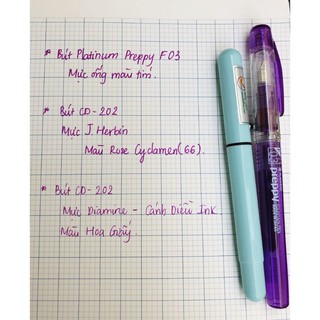 * Bút Platinum Preppy F 03
Mực ống màu tím.
* Bút CD-202
Mực J. Herbin
Màu Rose Cyclamen (66).
* Bút CD-202
Mực Diamine - Cánh Diều Ink
Màu Hoa Giấy
preppy